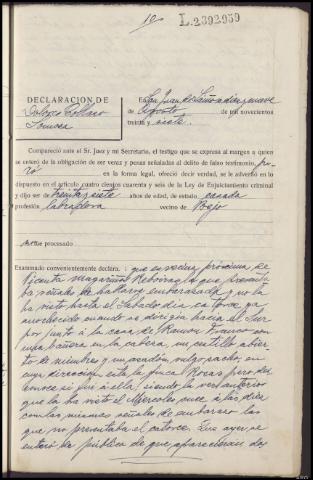 10
L.2392959
DECLARACION DE
Dolores Collazo
En San Juan de diez y nueve
de Agosto de mil novecientos
treinta y siete.
Compareció ante el Sr. Juez y mi Secretaria, el testigo que se expresa al margen a quien
se enteró de la obligación de ser veraz y penas señaladas al delito de falso testimonio, ju-
ró en la forma legal, ofreció decir verdad, se le advertió en lo
dispuesto en el artículo cuatro cientos cuarenta y seis de la Ley de Enjuiciamiento criminal
y dijo ser de treinta y siete años de edad, de estado casada
profesión labradora vecino de Bajo
no fue procesado
Examinado convenientemente declara: que es vecina próxima de
Vicenta Magariños Reboiras la que presenta-
ba señales de hallarse embarazada y no la
ha visto hasta el Sábado día catorce ya
anochecido cuando se dirigía hacia el Sur
por junto a la casa de Ramon Franco con
una bañera en la cabeza, un cestillo abier-
to de mimbres y un azadón vulgo sacho, en
cuya dirección está la finca Rozas pero des-
conoce si fué a ella; siendo la vez anterior
que la ha visto el Miercoles once a las diez
con las mismas señales de embarazo las
que no presentaba el catorce. Que ayer se
enteró de público de que aparecieran dos